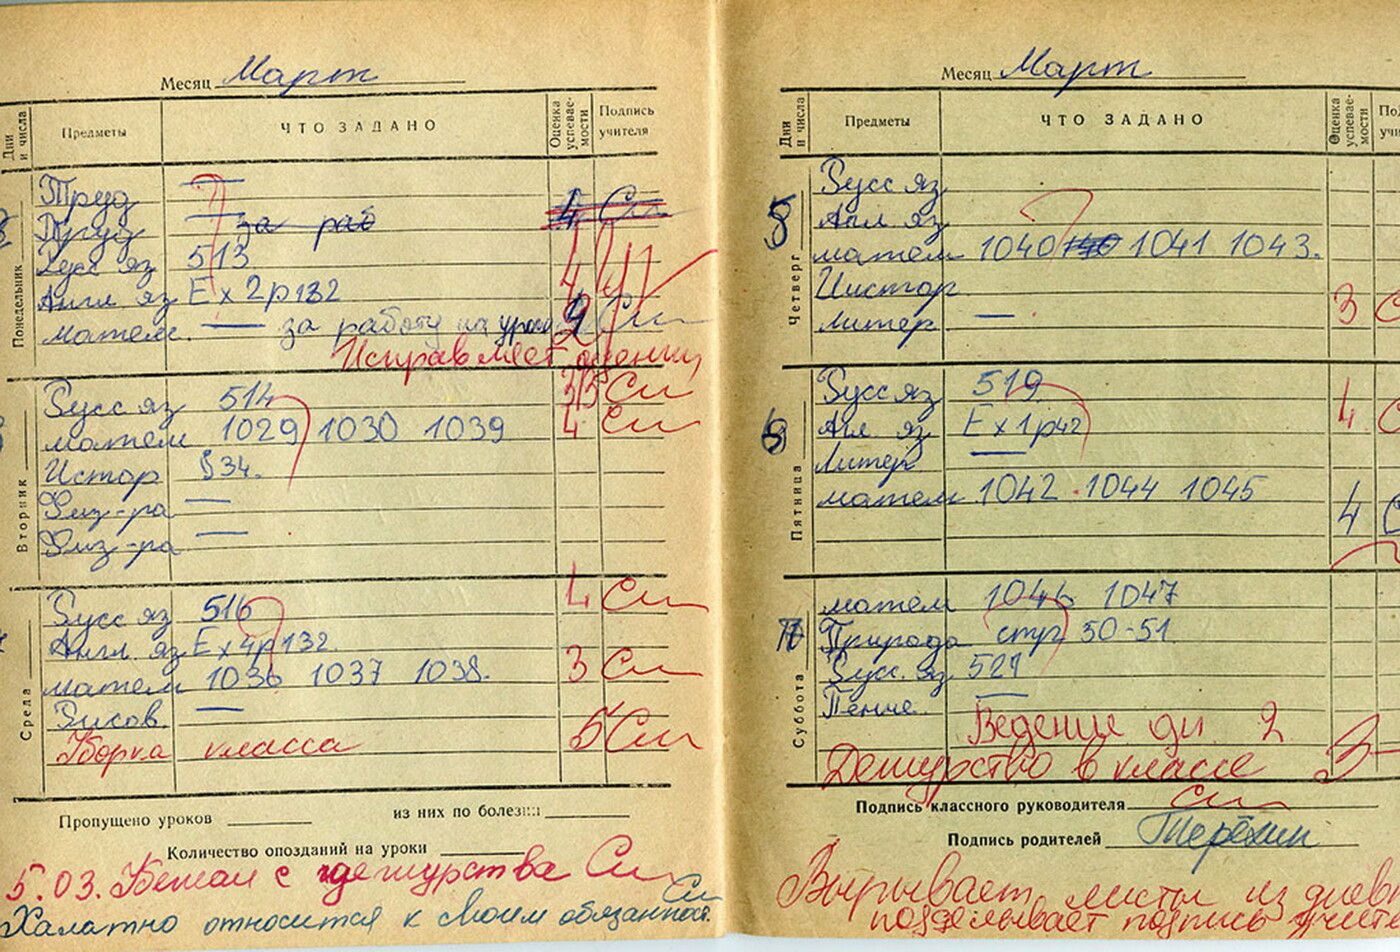 Месяц Март
Дни и числа Предметы ЧТО ЗАДАНО Оценка успевае-мости Подпись учителя
Понедельник
Труд —
Труд — за раб 4 См
Русс яз 513 4
Англ яз Ex 2 p 132
матем. — за работу на урока 2 См
Исправляет оценки
Вторник
Русс яз 514 3/3 См
матем 1029 1030 1039 4 См
Истор §34.
Физ-ра —
Физ-ра —
Среда
Русс яз 516 4 См
Англ. яз Ex 4 p 132
матем 1036 1037 1038. 3 См
Рисов. —
Уборка класса 5 См
Пропущено уроков из них по болезни
Количество опозданий на уроки
5.03. Бежал с дежурства См
Халатно относится к своим обязанност. См
Месяц Март
Дни и числа Предметы ЧТО ЗАДАНО Оценка успевае-мости
Четверг 5
Русс яз
Англ. яз
матем 1040 1041 1043.
Иистор 3
Литер —
Пятница 6
Русс яз 519 4
Агл. яз Ex 1 p 42
Литер —
матем 1042 1044 1045 4
Суббота
матем 1046 1047
Природа стр 50-51
Русс. яз 521
Пение —
Ведение дн 2
Дежурство в классе 3-
Подпись классного руководителя См
Подпись родителей Терёхин
Вырывает листы из днев
подделывает подпись учите